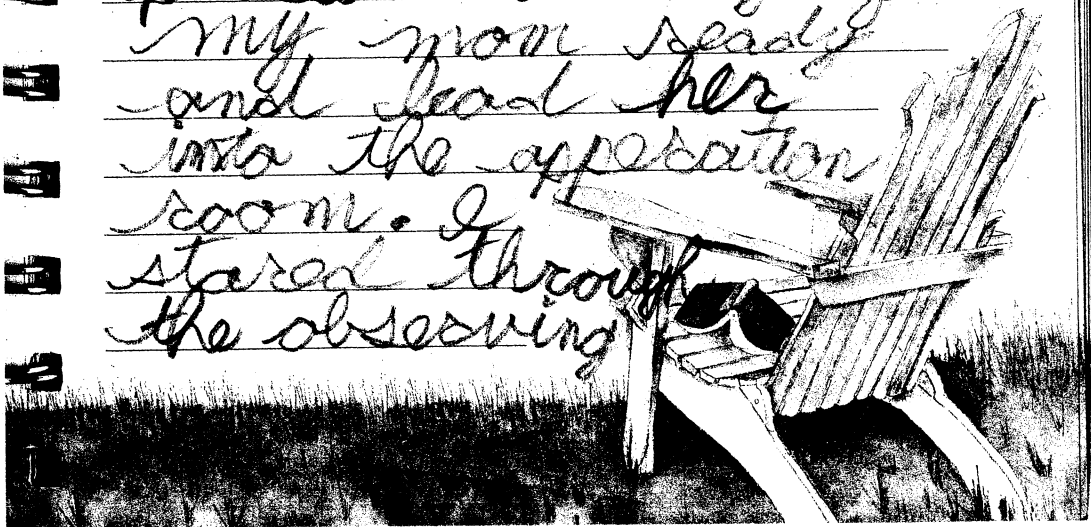 my mom ready
and lead her
into the apperation
room. I
stared through
the observing